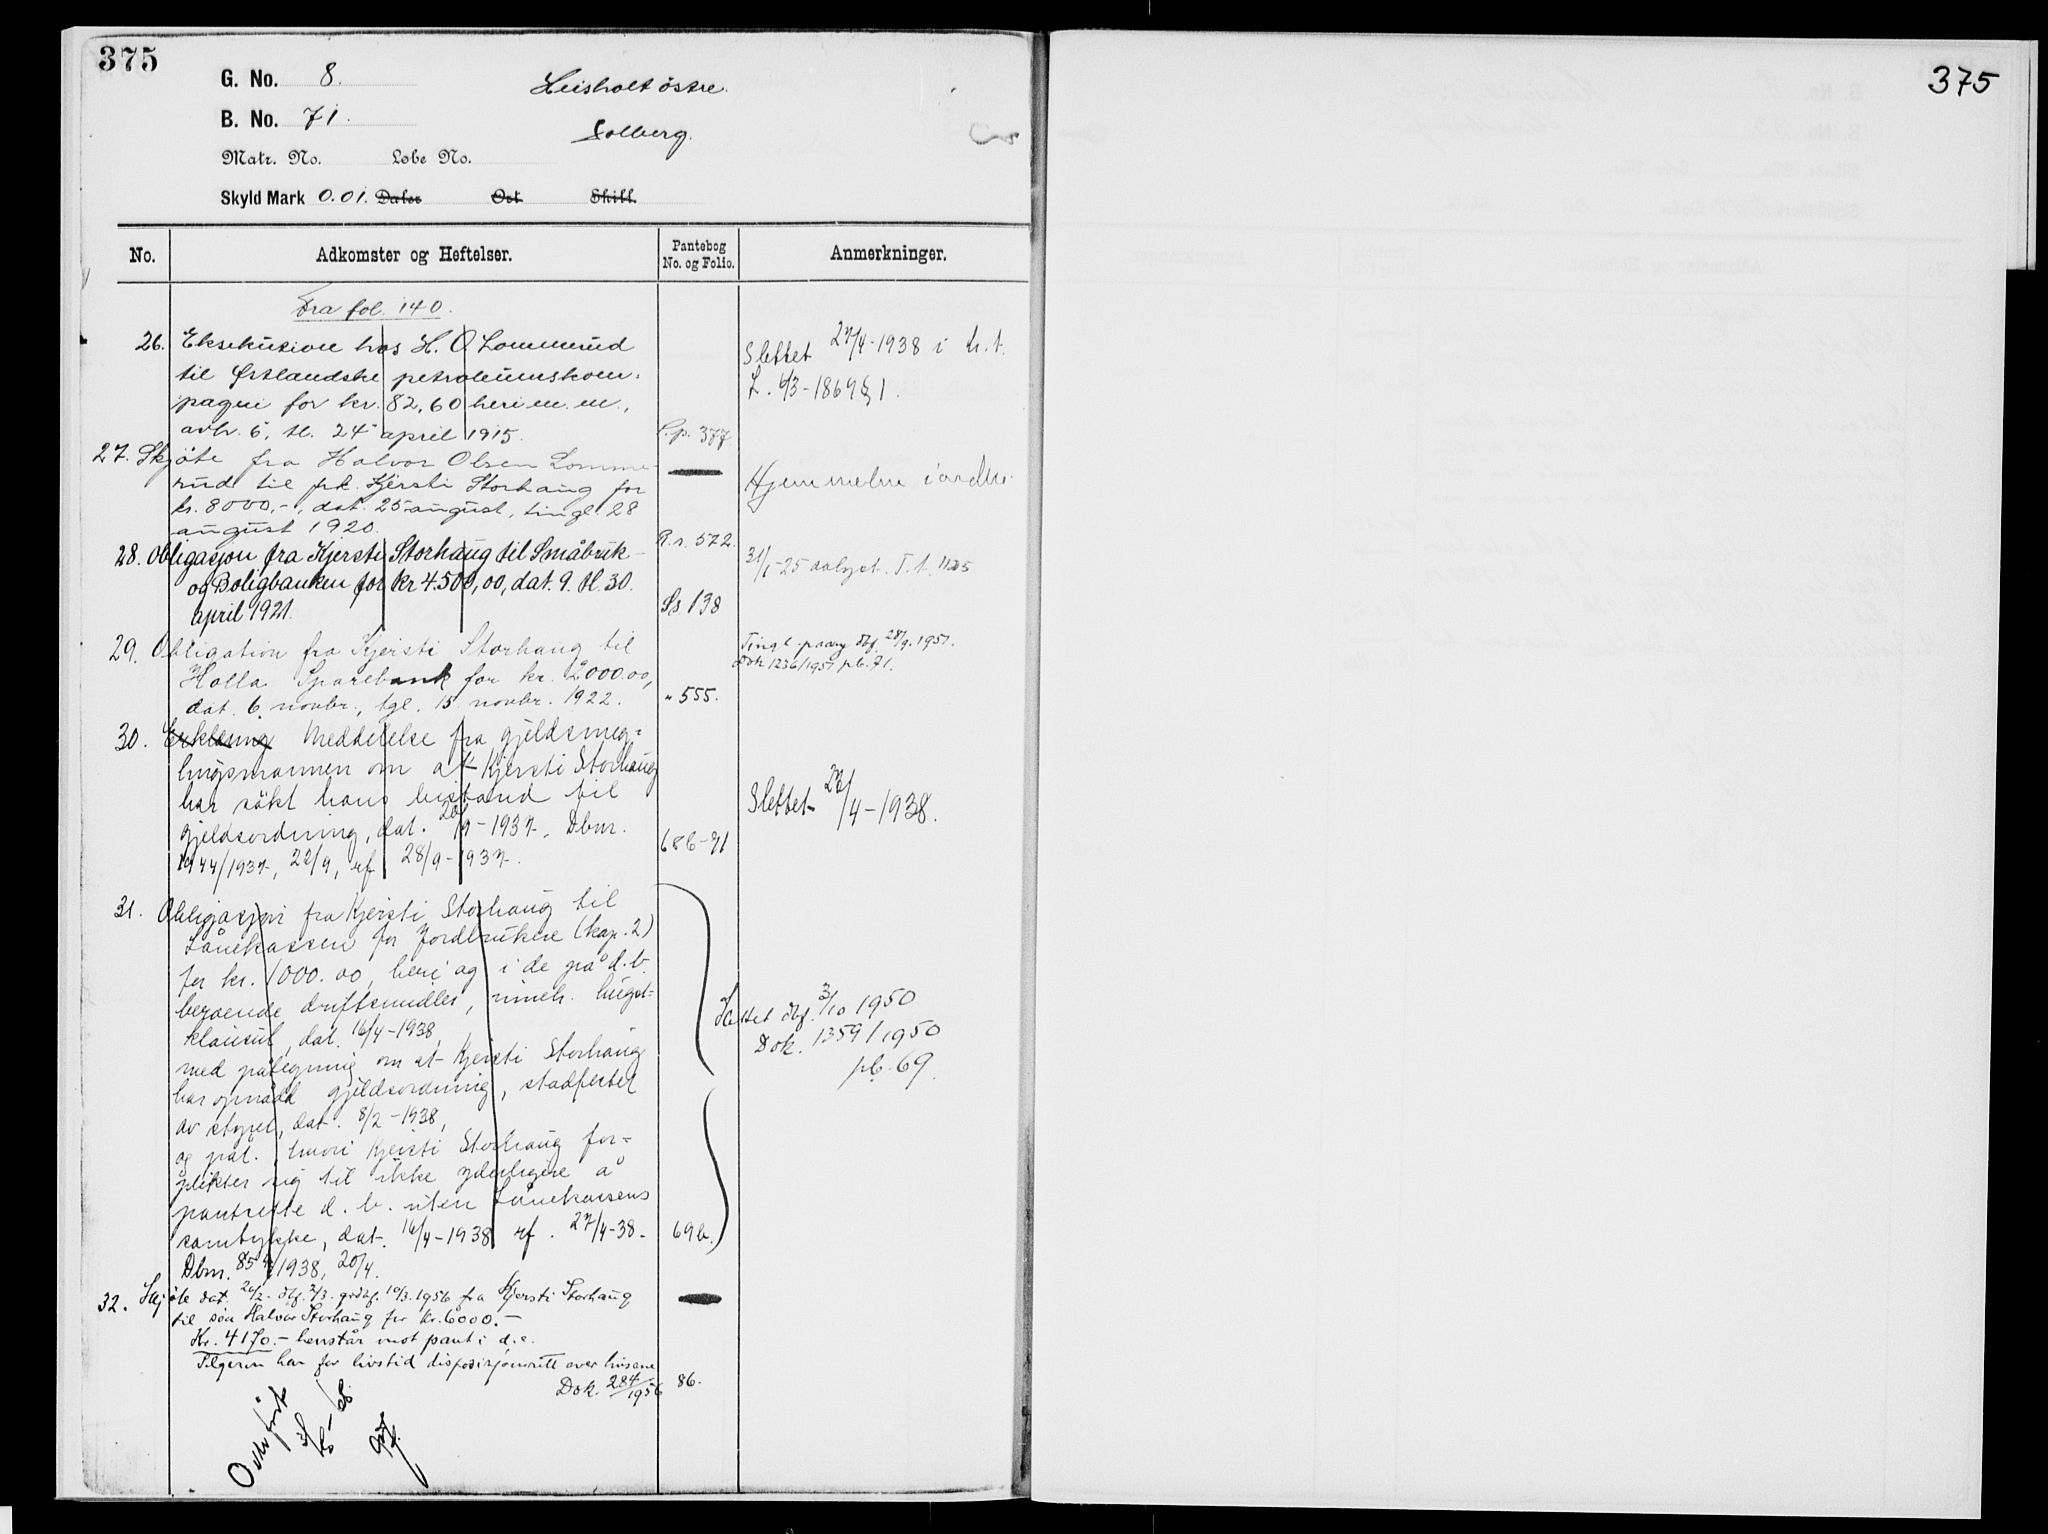 375
G. No. 8.
Heisholt østre.
B. No. 71.
Solberg.
Matr. No. Løbe No.
Skyld Mark 0.01. Daler Ort Skill.
No. Adkomster og Heftelser. Pantebog No. og Folio. Anmerkninger.
Fra fol. 140.
26. Eksekusion hos H. O. Lommerud
til Østlandske petroleumskom-
pagni for kr. 82,60 heri m. m.,
avh. 6, tl. 24 april 1915. P.p. 377
Slettet 27/4-1938 i h.t.
L. 4/3-1869 § 1.
27. Skjøte fra Halvor Olsen Lomme-
rud til pk. Kjersti Storhaug for
kr. 8000,-, dat. 25 august, tingl. 28
august 1920. R.r. 572.
Hjemmelen i orden.
28. Obligasjon fra Kjersti Storhaug til Småbruk-
og Boligbanken for kr 4.500,00, dat. 9. tl. 30.
april 1921. Ss. 138
31/1-25 avlyst. T.t. 1125
29. Obligation fra Kjersti Storhaug til
Holla Sparebank for kr. 2000.00,
dat. 6 novbr., tgl. 15 novbr. 1922. " 555.
Tingl. paany dbf. 28/9. 1951.
Dok 1236/1951 pb. 71.
30. Erklæring Meddelelse fra gjeldsmeg-
lingsmannen om at Kjersti Storhaug
har søkt hans bistand til
gjeldsordning, dat. 20/9-1937, Dbnr.
1944/1937, 22/9, rf 28/9-1937. 686-71
Slettet 27/4-1938.
31. Obligasjon fra Kjersti Storhaug til
Lånekassen for Jordbrukere (kap. 2)
for kr. 1000.00, heri og i de på d.b.
beroende driftsmidler, inneh. hugst-
klausul, dat. 16/4-1938,
med påtegning om at Kjersti Storhaug
har opnådd gjeldsordning, stadfestet
av styret, dat. 8/2-1938,
og påt. hvori Kjersti Storhaug for-
plikter sig til ikke yderligere å
pantsette d. b. uten Lånekassens
samtykke, dat. 16/4-1938 rf. 27/4-38.
Dbnr. 854/1938, 20/4. 69b.
Slettet dbf. 3/10 1950
Dok. 1359/1950
pb. 69.
32. Skjøte dat. 24/2- dbf. 2/3- godkj. 10/3. 1956 fra Kjersti Storhaug
til søn Halvor Storhaug for kr. 6000.-
Kr. 4170.- henstår mot pant i d.e.
Selgeren har for livstid disposisjonsrett over husene
Dok. 284/1956 86.
Overført
375